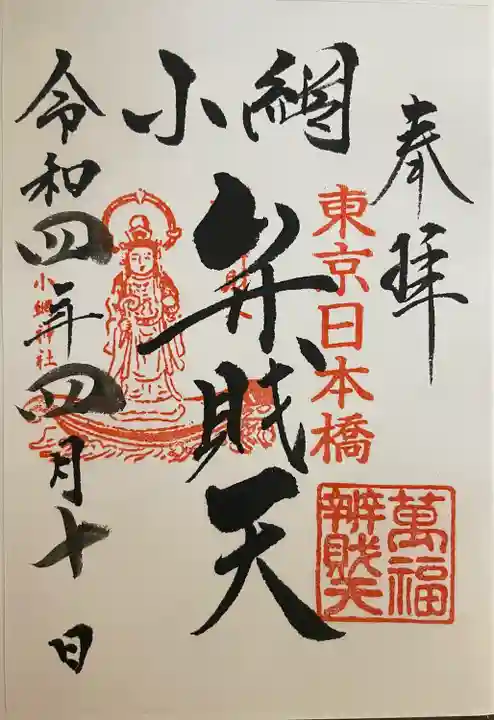 奉拝
東京日本橋
萬福
辨財天
小網
弁財天
小網神社
令和四年四月十日